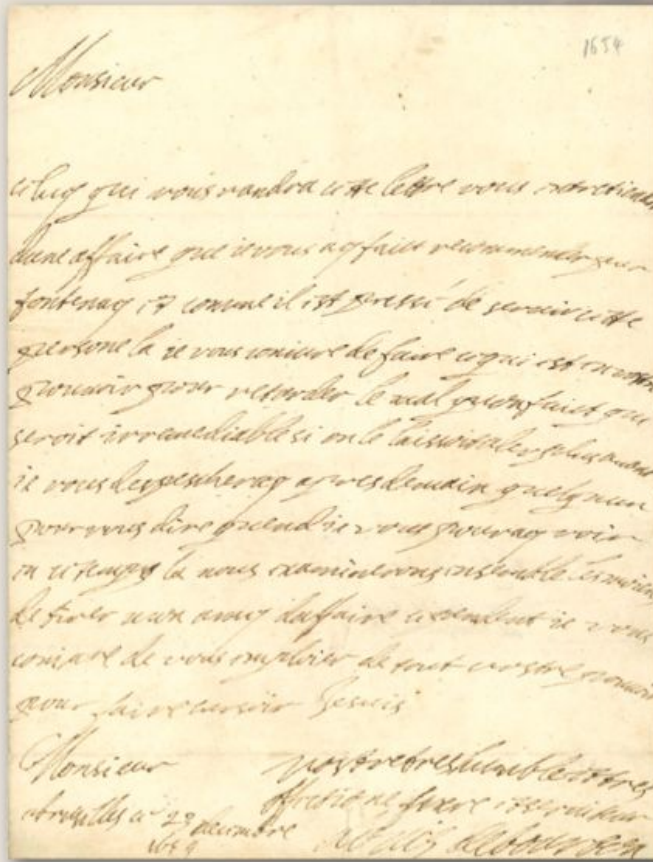 1654
Monsieur
celuy qui vous randra cette lettre vous
dune affaire que ie vous ay faict recommender par
fontenay et comme il est pressé de servir cette
persone la ie vous coniure de faire ce qui est en vostre
pouvoir pour retarder le mal quon faict qui
seroit irremediable si on le laissoit aler plus
ie vous depescheray apres demain quelquun
pour vous dire quand ie vous pouray voir
en ce temps la nous examinerons ensemble les moiens
de tirer mon amy daffaire cependent ie vous
coniure de vous emploier de tout vostre pouvoir
pour faire Je suis
Monsieur
vostre tres humble et tres
affectioné frere et serviteur
a bruxelles ce 29 decembre
Louis de bourbon